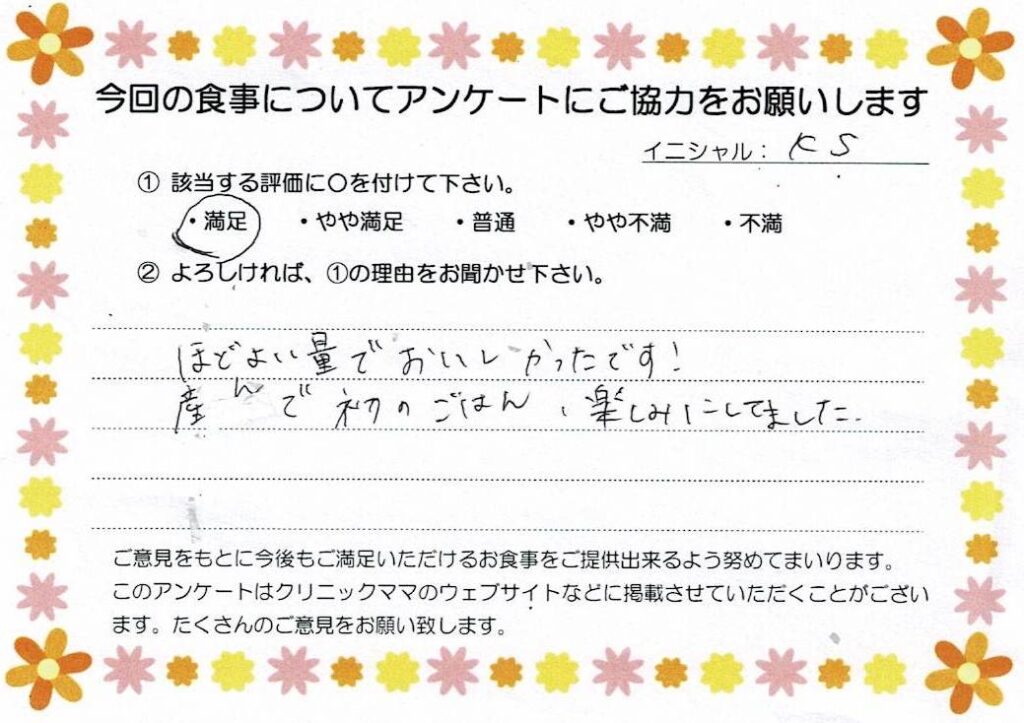 今回の食事についてアンケートにご協力をお願いします
イニシャル： K S
① 該当する評価に〇を付けて下さい。
・満足 ・やや満足 ・普通 ・やや不満 ・不満
② よろしければ、①の理由をお聞かせ下さい。
ほどよい量でおいしかったです！
産んで初のごはん、楽しみにしてました.
ご意見をもとに今後もご満足いただけるお食事をご提供出来るよう努めてまいります。
このアンケートはクリニックママのウェブサイトなどに掲載させていただくことがござい
ます。たくさんのご意見をお願い致します。